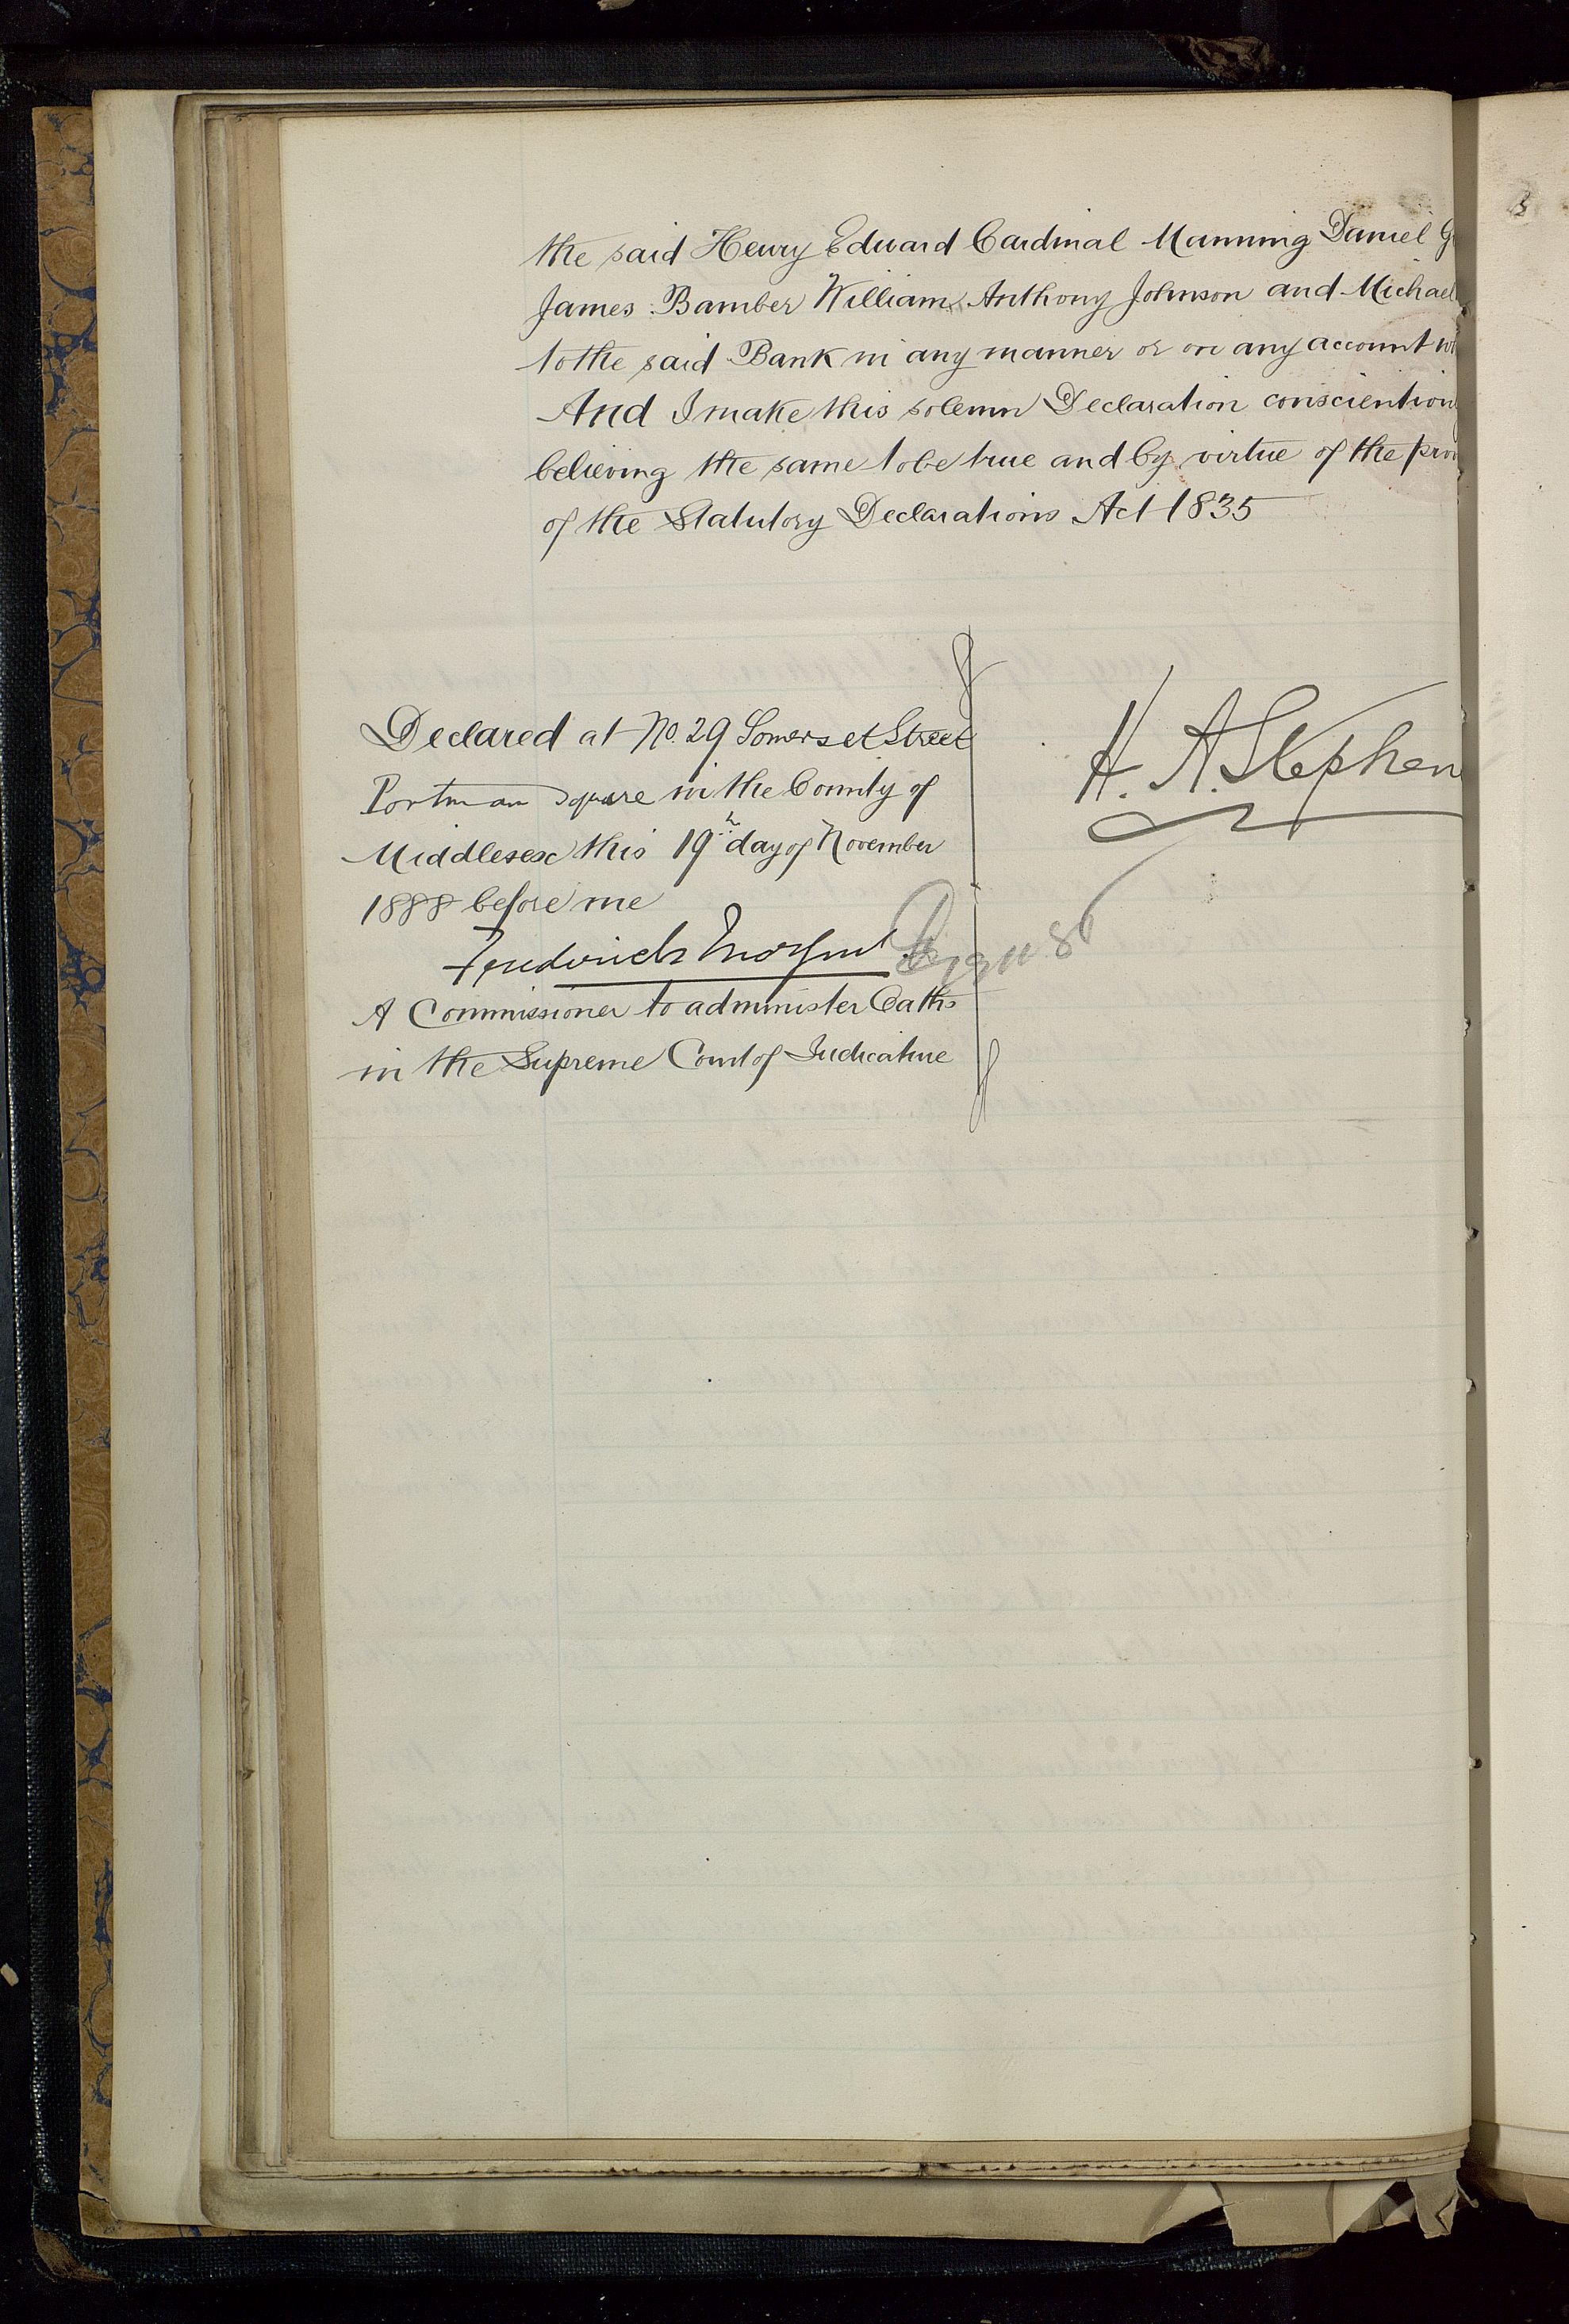 the said Henry Edward Cardinal Manning Daniel G
James Bamber William Anthony Johnson and Michael
to the said Bank in any manner or on any account w
And I make this solemn Declaration conscientious
believing the same to be true and by virtue of the prov
of the Statutory Declarations Act 1835
Declared at No. 29 Somerset Street
Portman Square in the County of
Middlesex this 19th day of November
1888 before me
Frederick
A Commissioner to administer Oaths
in the Supreme Court of Judicature
H. A. Stephen